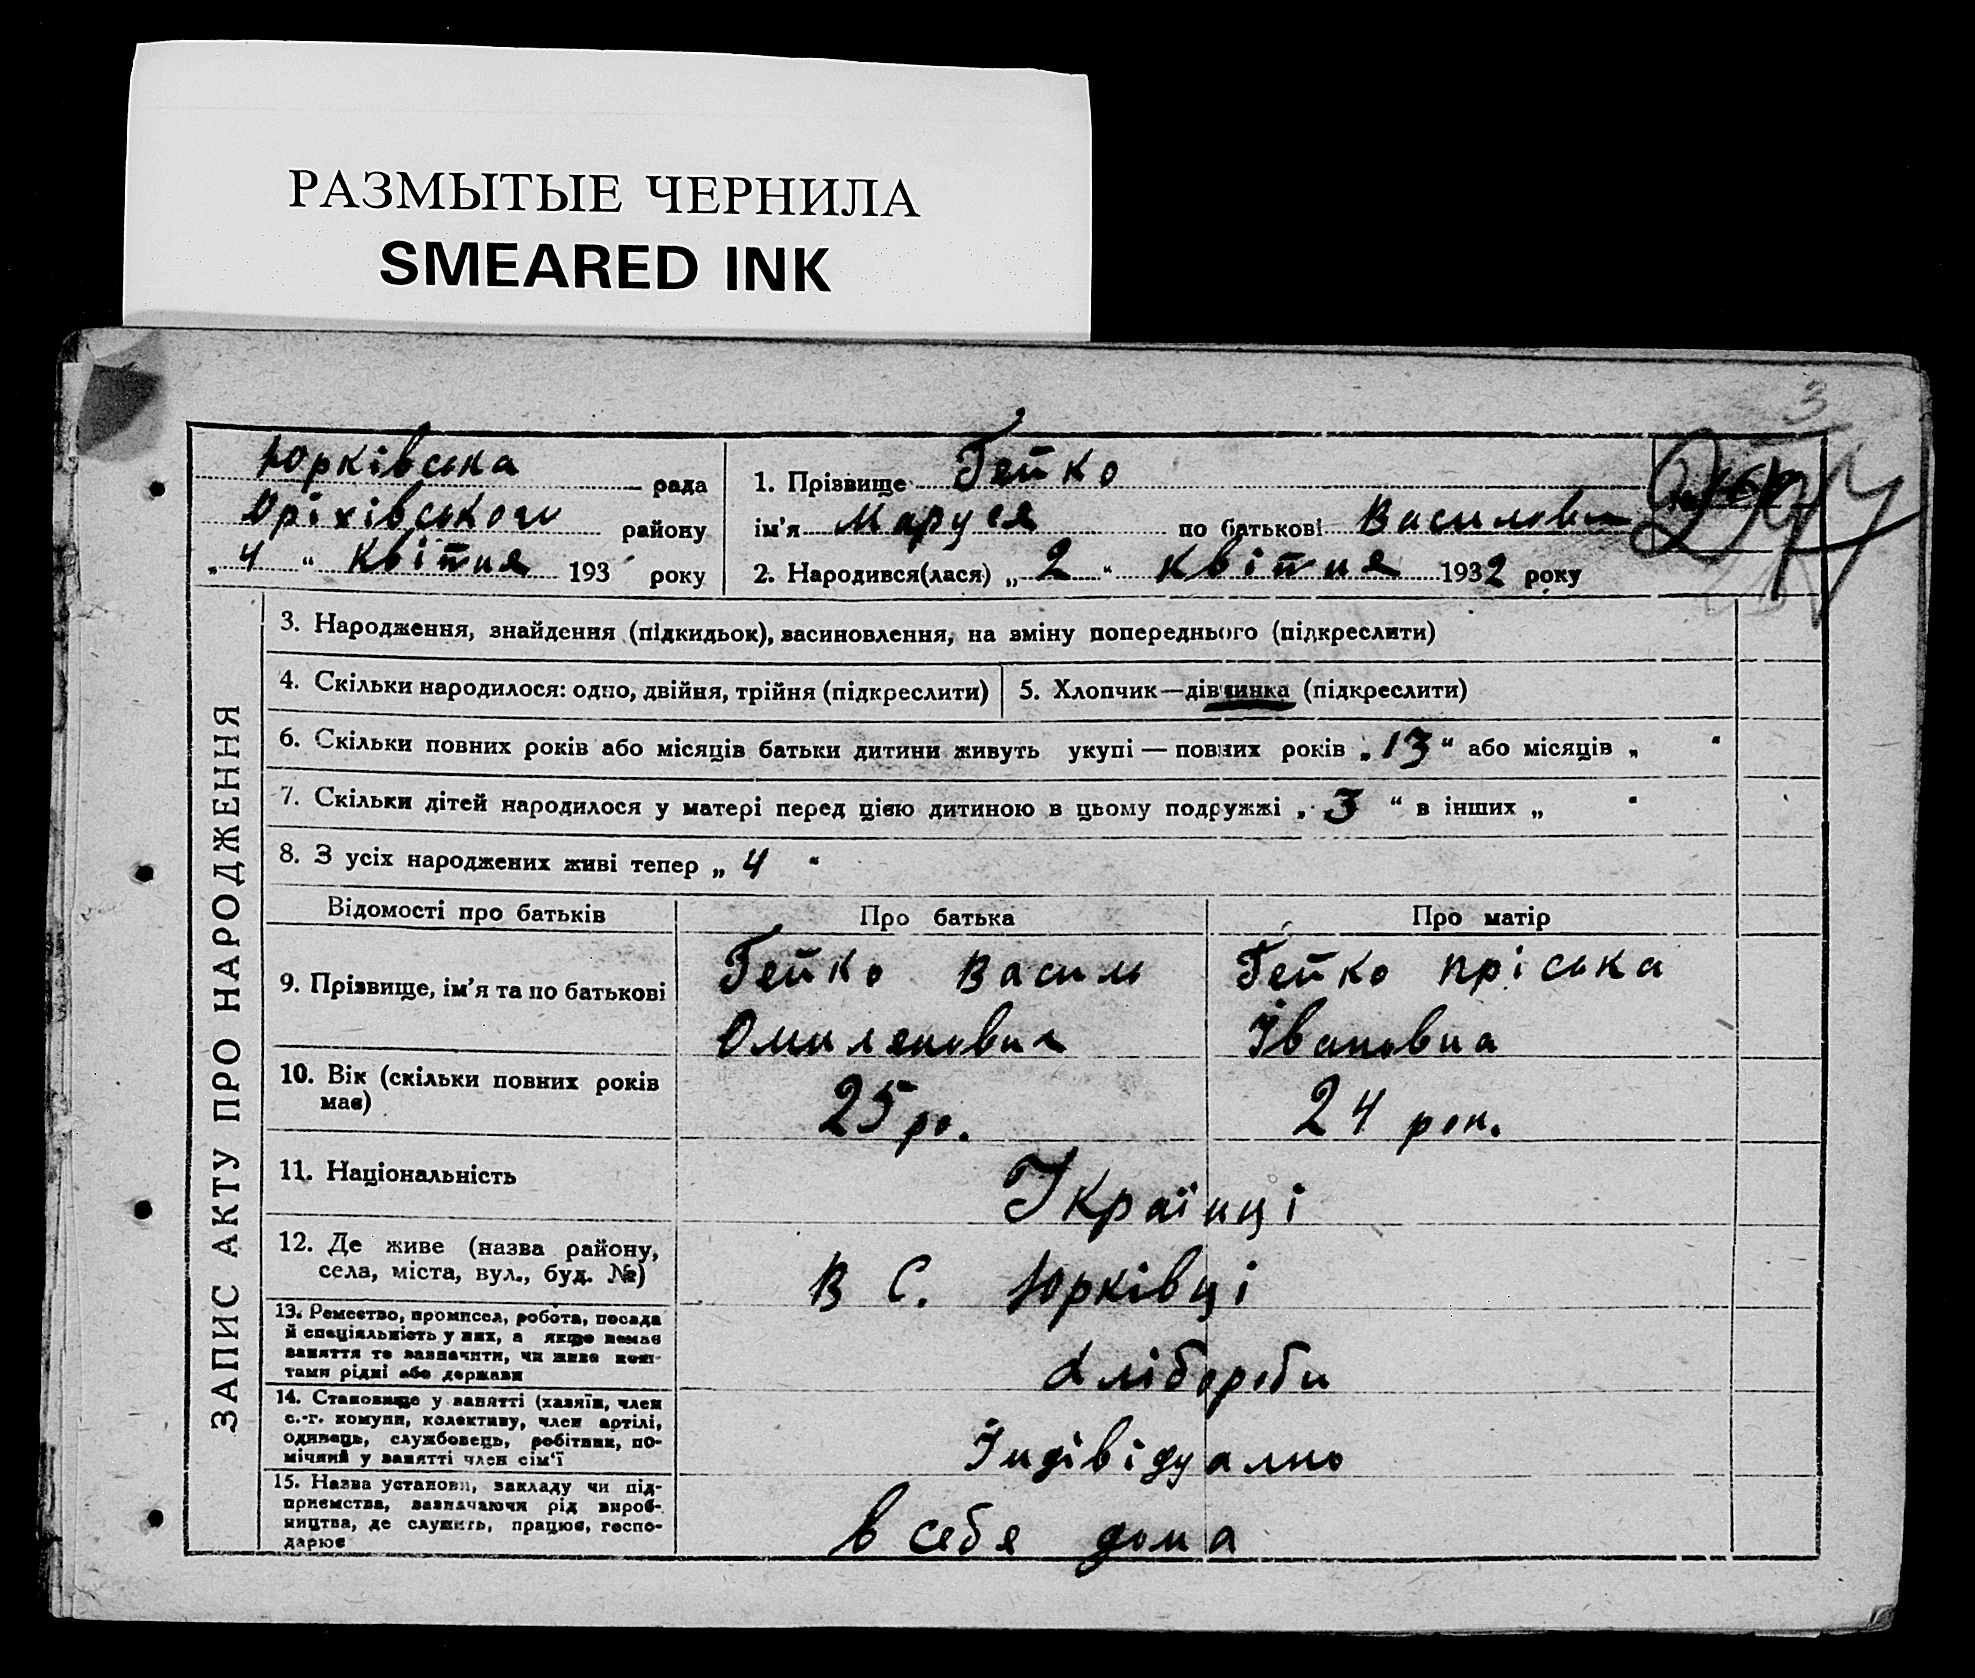 РАЗМЫТЫЕ ЧЕРНИЛА
SMEARED INK
3
Юрківська рада
Оріхівського району
„ 4 “ Квітня 193 року
1. Прізвище Гейко
ім’я Маруся по батькові Василовн
2. Народився(лася) „ 2 “ квітня 1932 року
ЗАПИС АКТУ ПРО НАРОДЖЕННЯ
3. Народження, знайдення (підкидьок), васиновлення, на зміну попереднього (підкреслити)
4. Скільки народилося: одно, двійня, трійня (підкреслити)
5. Хлопчик—дівчинка (підкреслити)
6. Скільки повних років або місяців батьки дитини живуть укупі — повних років „ 13 “ або місяців „ “
7. Скільки дітей народилося у матері перед цією дитиною в цьому подружжі „ 3 “ в інших „ “
8. З усіх народжених живі тепер „ 4 “
Відомості про батьків
Про батька
Про матір
9. Прізвище, ім’я та по батькові
Гейко Василь
Омилянович
Гейко Пріська
Івановна
10. Вік (скільки повних років
має)
25 ро.
24 рок.
11. Національність
Українці
12. Де живе (назва району,
села, міста, вул., буд. №)
в С. Юрківці
13. Ремество, промисел, робота, посада
й спеціяльність у них, а якщо немає
заняття то зазначити, чи живе кош-
тами рідні або держави
хлібороби
14. Становище у занятті (хазяїн, член
с.-г. комуни, колективу, член артілі,
одинець, службовець, робітник, по-
мічний у занятті член сім’ї
Індівідуално
15. Назва установи, закладу чи під-
приємства, зазначаючи рід вироб-
ництва, де служить, працює, госпо-
дарює
в себя дома